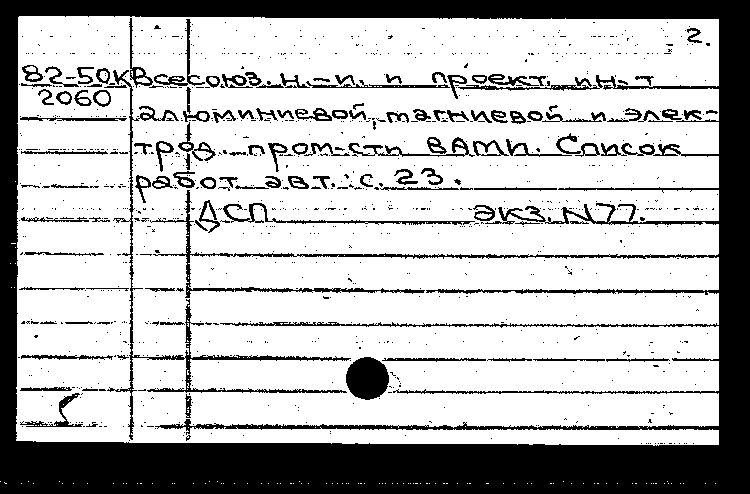 2.
82-50К Всесоюз. н.-и. и проект. ин-т
2060 алюминиевой, магниевой и элек-
трод. пром-сти ВАМИ. Список
работ авт.: с. 23.
ДСП. экз. N77.